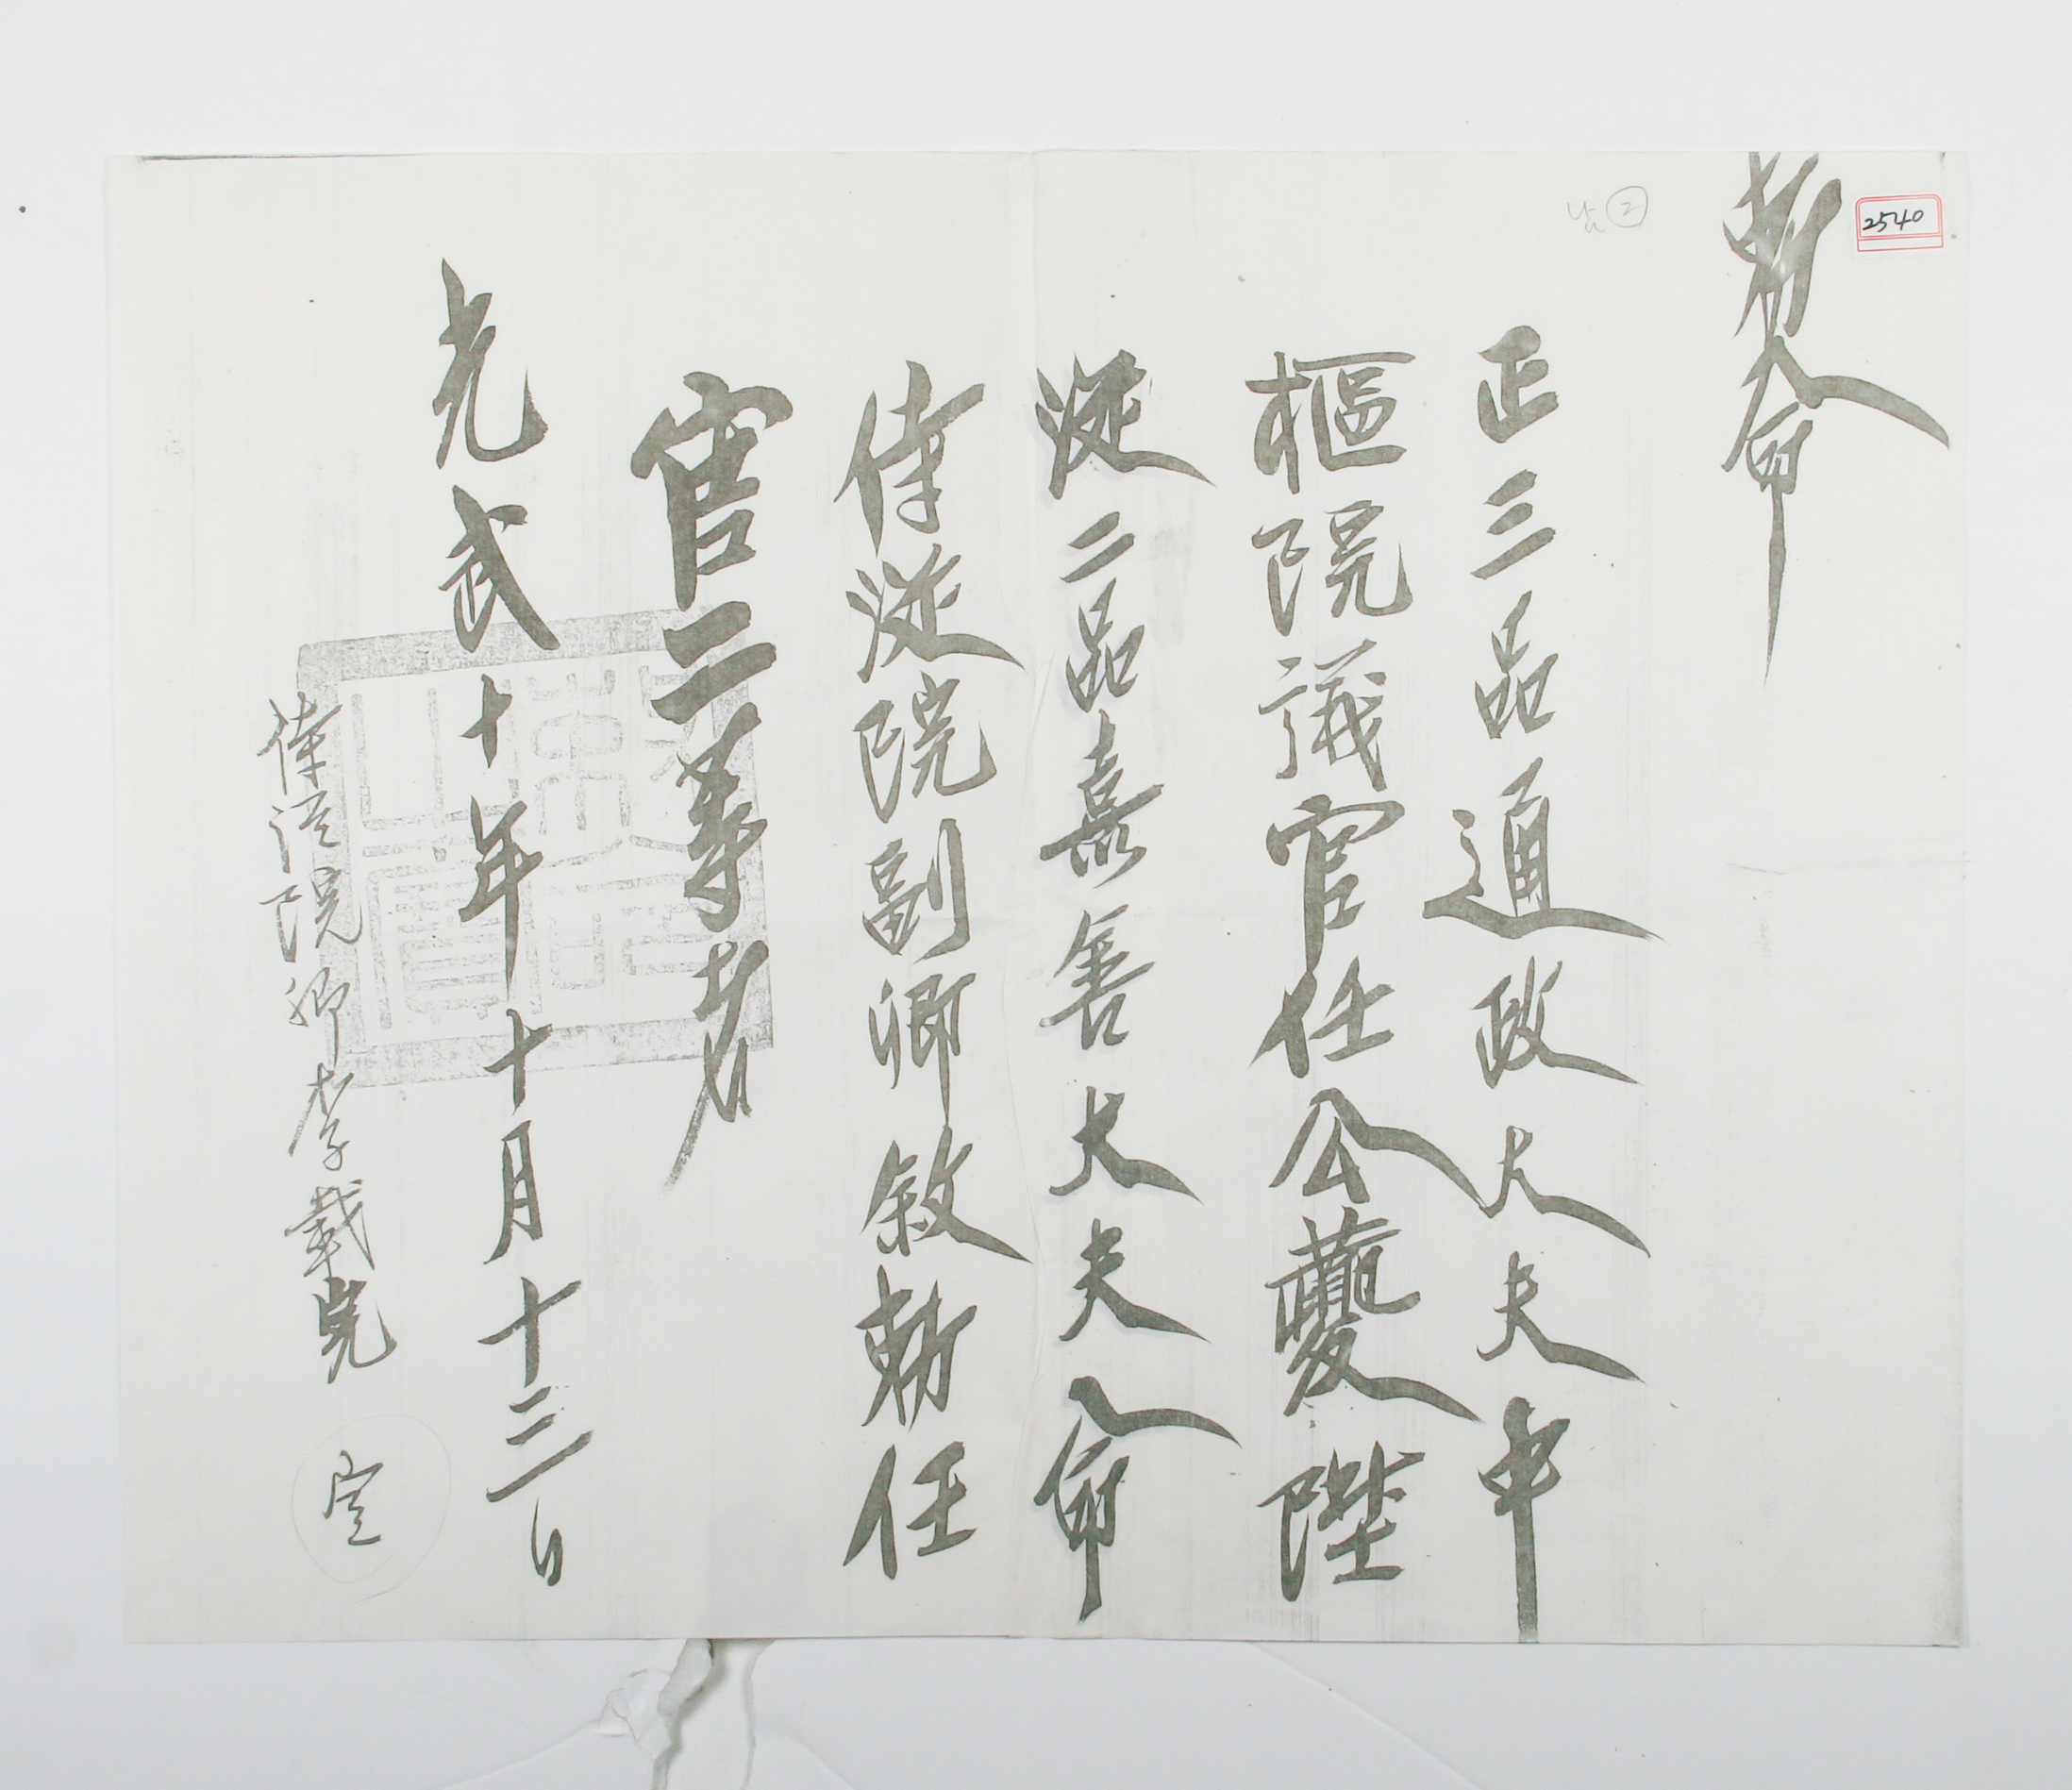 2540
남 ②
勅命
正三品通政大夫中
樞院議官任公蘷陞
從二品嘉善大夫命
侍從院副卿敍勅任
官二等者
光武十年十月十三日
侍從院卿李載完